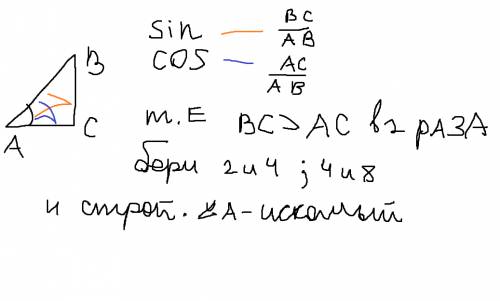 sin — BC/AB
cos — AC/AB
B
A
C
т.Е BC > AC в 2 раЗА
бери 2 и 4 ; 4 и 8
и строй. ∠A - искомый